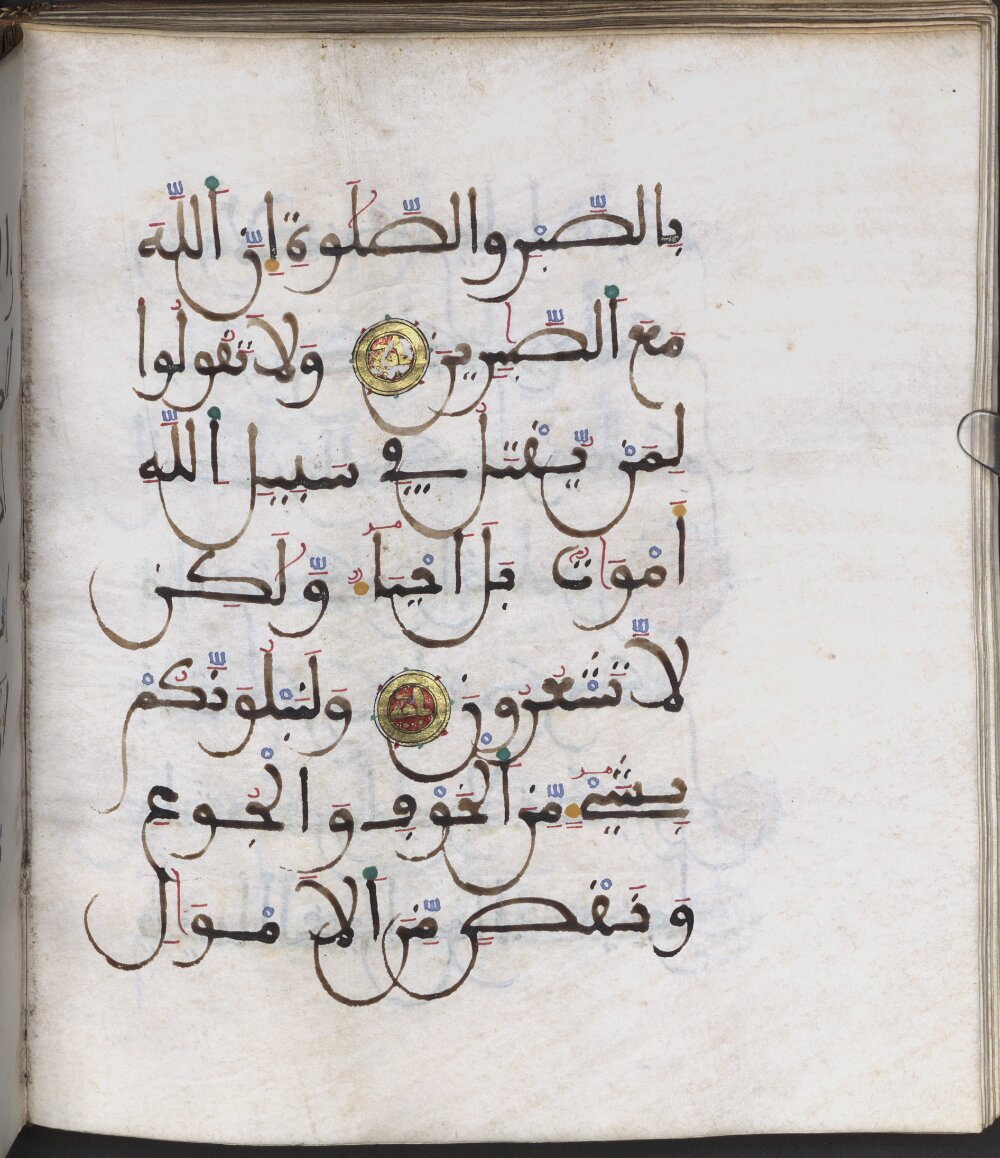 بِالصَّبْرِ وَالصَّلَوٰةِ إِنَّ اَللَّهَ
مَعَ اَلصَّٰبِرِينَ وَلَا تَقُولُوا
لِمَنْ يُّقْتَلُ فِي سَبِيلِ اِللَّهِ
أَمْوَٰتٌ بَلَ اَحْيَآءٌ وَّلَٰكِن
لَّا تَشْعُرُونَ وَلَنَبْلُوَنَّكُمْ
بِشَيْءٍ مِّنَ اَلْخَوْفِ وَالْجُوعِ
وَنَقْصٍ مِّنَ اَلَامْوَٰلِ